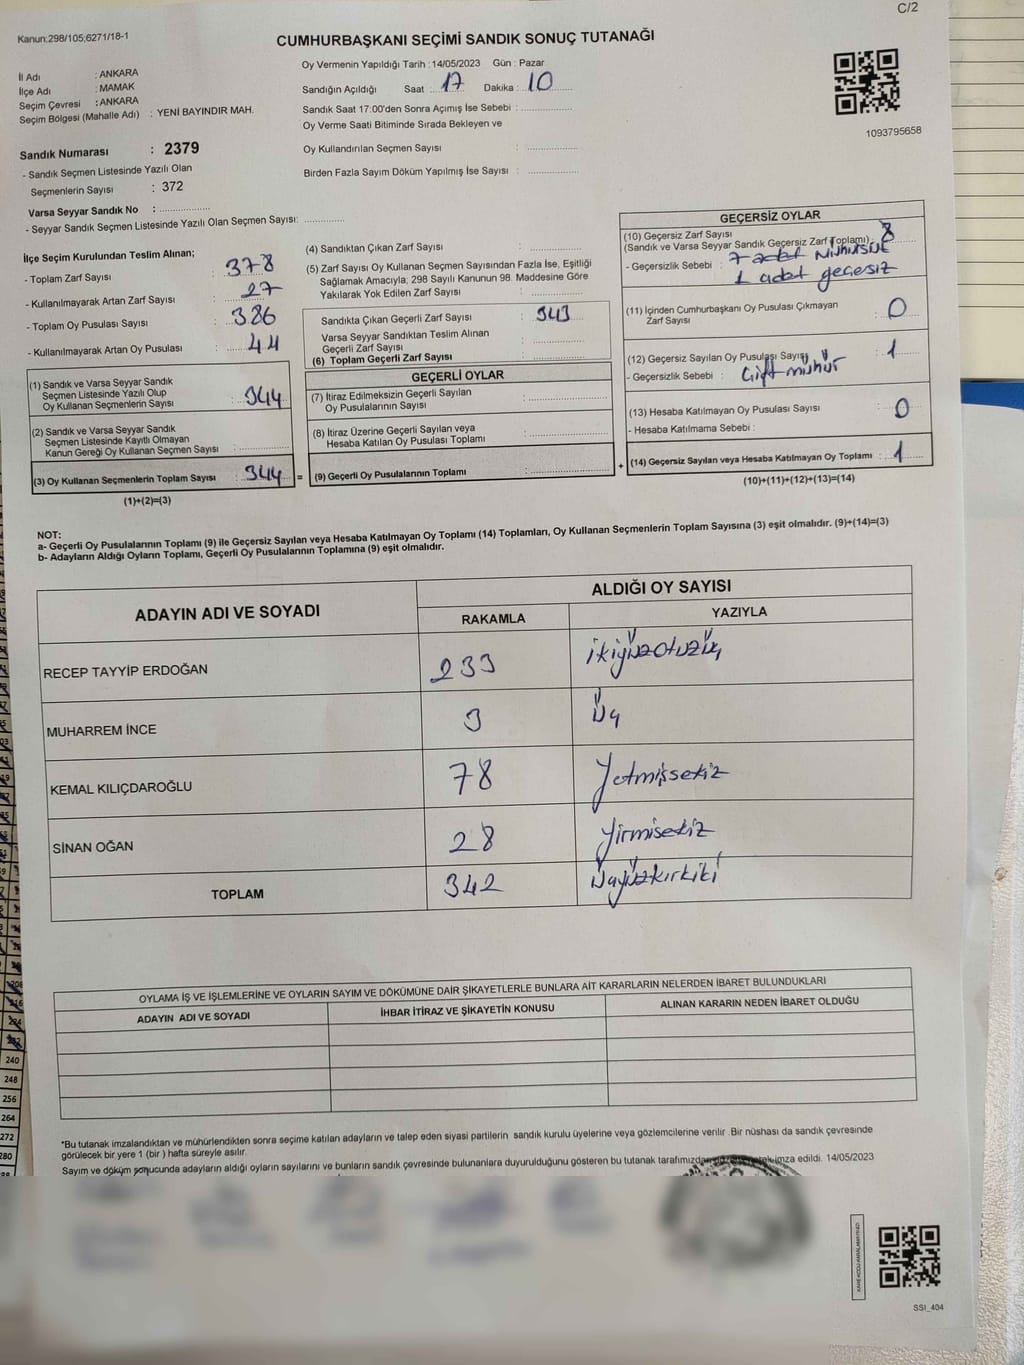 C/2
Kanun:298/105;6271/18-1
CUMHURBAŞKANI SEÇİMİ SANDIK SONUÇ TUTANAĞI
İl Adı : ANKARA
İlçe Adı : MAMAK
Seçim Çevresi : ANKARA
Seçim Bölgesi (Mahalle Adı) : YENİ BAYINDIR MAH.
Oy Vermenin Yapıldığı Tarih : 14/05/2023 Gün : Pazar
Sandığın Açıldığı Saat : 17 Dakika : 10
Sandık Saat 17:00'den Sonra Açımış İse Sebebi :
Oy Verme Saati Bitiminde Sırada Bekleyen ve
Oy Kullandırılan Seçmen Sayısı :
Birden Fazla Sayım Döküm Yapılmış İse Sayısı :
1093795658
Sandık Numarası : 2379
- Sandık Seçmen Listesinde Yazılı Olan
Seçmenlerin Sayısı : 372
Varsa Seyyar Sandık No :
- Seyyar Sandık Seçmen Listesinde Yazılı Olan Seçmen Sayısı:
İlçe Seçim Kurulundan Teslim Alınan;
- Toplam Zarf Sayısı : 378
- Kullanılmayarak Artan Zarf Sayısı : 27
- Toplam Oy Pusulası Sayısı : 386
- Kullanılmayarak Artan Oy Pusulası : 44
(1) Sandık ve Varsa Seyyar Sandık
Seçmen Listesinde Yazılı Olup
Oy Kullanan Seçmenlerin Sayısı : 344
(2) Sandık ve Varsa Seyyar Sandık
Seçmen Listesinde Kayıtlı Olmayan
Kanun Gereği Oy Kullanan Seçmen Sayısı :
(3) Oy Kullanan Seçmenlerin Toplam Sayısı : 344 =
(1)+(2)=(3)
(4) Sandıktan Çıkan Zarf Sayısı :
(5) Zarf Sayısı Oy Kullanan Seçmen Sayısından Fazla İse, Eşitliği
Sağlamak Amacıyla, 298 Sayılı Kanunun 98. Maddesine Göre
Yakılarak Yok Edilen Zarf Sayısı :
Sandıkta Çıkan Geçerli Zarf Sayısı : 343
Varsa Seyyar Sandıktan Teslim Alınan
Geçerli Zarf Sayısı :
(6) Toplam Geçerli Zarf Sayısı :
GEÇERLİ OYLAR
(7) İtiraz Edilmeksizin Geçerli Sayılan
Oy Pusulalarının Sayısı :
(8) İtiraz Üzerine Geçerli Sayılan veya
Hesaba Katılan Oy Pusulası Toplamı :
(9) Geçerli Oy Pusulalarının Toplamı : +
GEÇERSİZ OYLAR
(10) Geçersiz Zarf Sayısı
(Sandık ve Varsa Seyyar Sandık Geçersiz Zarf Toplamı) : 8
- Geçersizlik Sebebi : 7 adet mühürsüz
1 adet geçersiz
(11) İçinden Cumhurbaşkanı Oy Pusulası Çıkmayan
Zarf Sayısı : 0
(12) Geçersiz Sayılan Oy Pusulası Sayısı : 1
- Geçersizlik Sebebi : Çift mühür
(13) Hesaba Katılmayan Oy Pusulası Sayısı : 0
- Hesaba Katılmama Sebebi :
(14) Geçersiz Sayılan veya Hesaba Katılmayan Oy Toplamı : 1
(10)+(11)+(12)+(13)=(14)
NOT:
a- Geçerli Oy Pusulalarının Toplamı (9) ile Geçersiz Sayılan veya Hesaba Katılmayan Oy Toplamı (14) Toplamları, Oy Kullanan Seçmenlerin Toplam Sayısına (3) eşit olmalıdır. (9)+(14)=(3)
b- Adayların Aldığı Oyların Toplamı, Geçerli Oy Pusulalarının Toplamına (9) eşit olmalıdır.
ADAYIN ADI VE SOYADI ALDIĞI OY SAYISI
RAKAMLA YAZIYLA
RECEP TAYYİP ERDOĞAN 233 ikiyüzotuzüç
MUHARREM İNCE 3 Üç
KEMAL KILIÇDAROĞLU 78 Yetmişsekiz
SİNAN OĞAN 28 Yirmisekiz
TOPLAM 342 Üçyüzkırkiki
OYLAMA İŞ VE İŞLEMLERİNE VE OYLARIN SAYIM VE DÖKÜMÜNE DAİR ŞİKAYETLERLE BUNLARA AİT KARARLARIN NELERDEN İBARET BULUNDUKLARI
ADAYIN ADI VE SOYADI İHBAR İTİRAZ VE ŞİKAYETİN KONUSU ALINAN KARARIN NEDEN İBARET OLDUĞU
240
248
256
264
272
280
*Bu tutanak imzalandıktan ve mühürlendikten sonra seçime katılan adayların ve talep eden siyasi partilerin sandık kurulu üyelerine veya gözlemcilerine verilir. Bir nüshası da sandık çevresinde
görülecek bir yere 1 (bir) hafta süreyle asılır.
Sayım ve döküm sonucunda adayların aldığı oyların sayılarını ve bunların sandık çevresinde bulunanlara duyurulduğunu gösteren bu tutanak tarafımızdan imza edildi. 14/05/2023
SSI_404